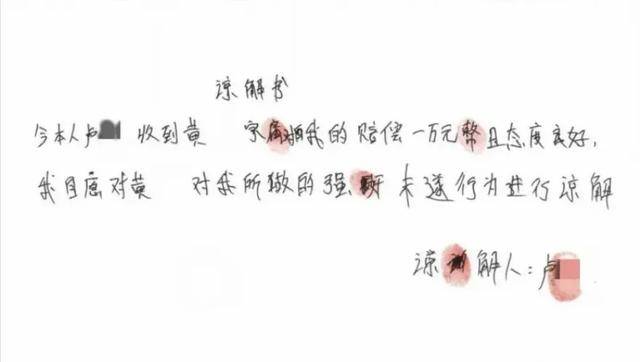 谅解书
今本人卢 收到黄 家属 我的赔偿一万元整且态度良好,
我自愿对黄 对我所做的强奸未遂行为进行谅解
谅解人:卢